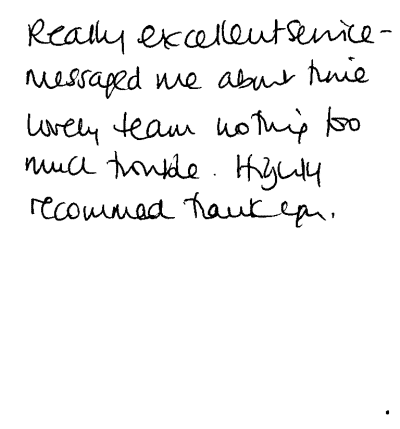 Really excellent service -
messaged me about time
lovely team nothing too
much trouble. Highly
recommend thank you.